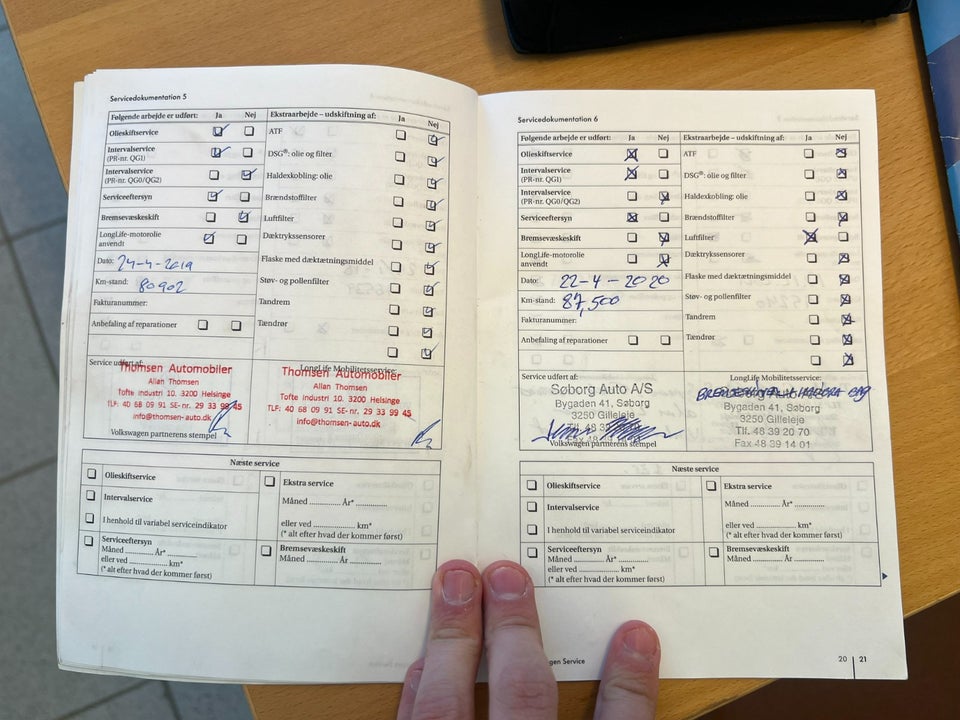 Servicedokumentation 5
Følgende arbejde er udført: Ja Nej
Olieskiftservice
Intervalservice
(PR-nr. QG1)
Intervalservice
(PR-nr. QG0/QG2)
Serviceeftersyn
Bremsevæskeskift
LongLife-motorolie
anvendt
Dato: 24-4-2019
Km-stand: 80902
Fakturanummer:
Anbefaling af reparationer
Ekstraarbejde – udskiftning af: Ja Nej
ATF
DSG®: olie og filter
Haldexkobling: olie
Brændstoffilter
Luftfilter
Dæktrykssensorer
Flaske med dæktætningsmiddel
Støv- og pollenfilter
Tandrem
Tændrør
Service udført af:
Thomsen Automobiler
Allan Thomsen
Tofte Industri 10, 3200 Helsinge
TLF: 40 68 09 91 SE-nr. 29 33 99 45
info@thomsen-auto.dk
Volkswagen partnerens stempel
LongLife Mobilitetsservice:
Thomsen Automobiler
Allan Thomsen
Tofte Industri 10, 3200 Helsinge
TLF: 40 68 09 91 SE-nr. 29 33 99 45
info@thomsen-auto.dk
Næste service
Olieskiftservice
Intervalservice
I henhold til variabel serviceindikator
Serviceeftersyn
Måned ........... År* ...........
eller ved ........... km*
(* alt efter hvad der kommer først)
Ekstra service
Måned ........... År* ...........
eller ved ........... km*
(* alt efter hvad der kommer først)
Bremsevæskeskift
Måned ........... År ...........
Servicedokumentation 6
Følgende arbejde er udført: Ja Nej
Olieskiftservice
Intervalservice
(PR-nr. QG1)
Intervalservice
(PR-nr. QG0/QG2)
Serviceeftersyn
Bremsevæskeskift
LongLife-motorolie
anvendt
Dato: 22-4-2020
Km-stand: 87,500
Fakturanummer:
Anbefaling af reparationer
Ekstraarbejde – udskiftning af: Ja Nej
ATF
DSG®: olie og filter
Haldexkobling: olie
Brændstoffilter
Luftfilter
Dæktrykssensorer
Flaske med dæktætningsmiddel
Støv- og pollenfilter
Tandrem
Tændrør
Service udført af:
Søborg Auto A/S
Bygaden 41, Søborg
3250 Gilleleje
Tlf. 48 39
Fax 48 39
Volkswagen partnerens stempel
LongLife Mobilitetsservice:
Bygaden 41, Søborg
3250 Gilleleje
Tlf. 48 39 20 70
Fax 48 39 14 01
Næste service
Olieskiftservice
Intervalservice
I henhold til variabel serviceindikator
Serviceeftersyn
Måned ........... År* ...........
eller ved ........... km*
(* alt efter hvad der kommer først)
Ekstra service
Måned ........... År* ...........
eller ved ........... km*
(* alt efter hvad der kommer først)
Bremsevæskeskift
Måned ........... År ...........
gen Service
20 21